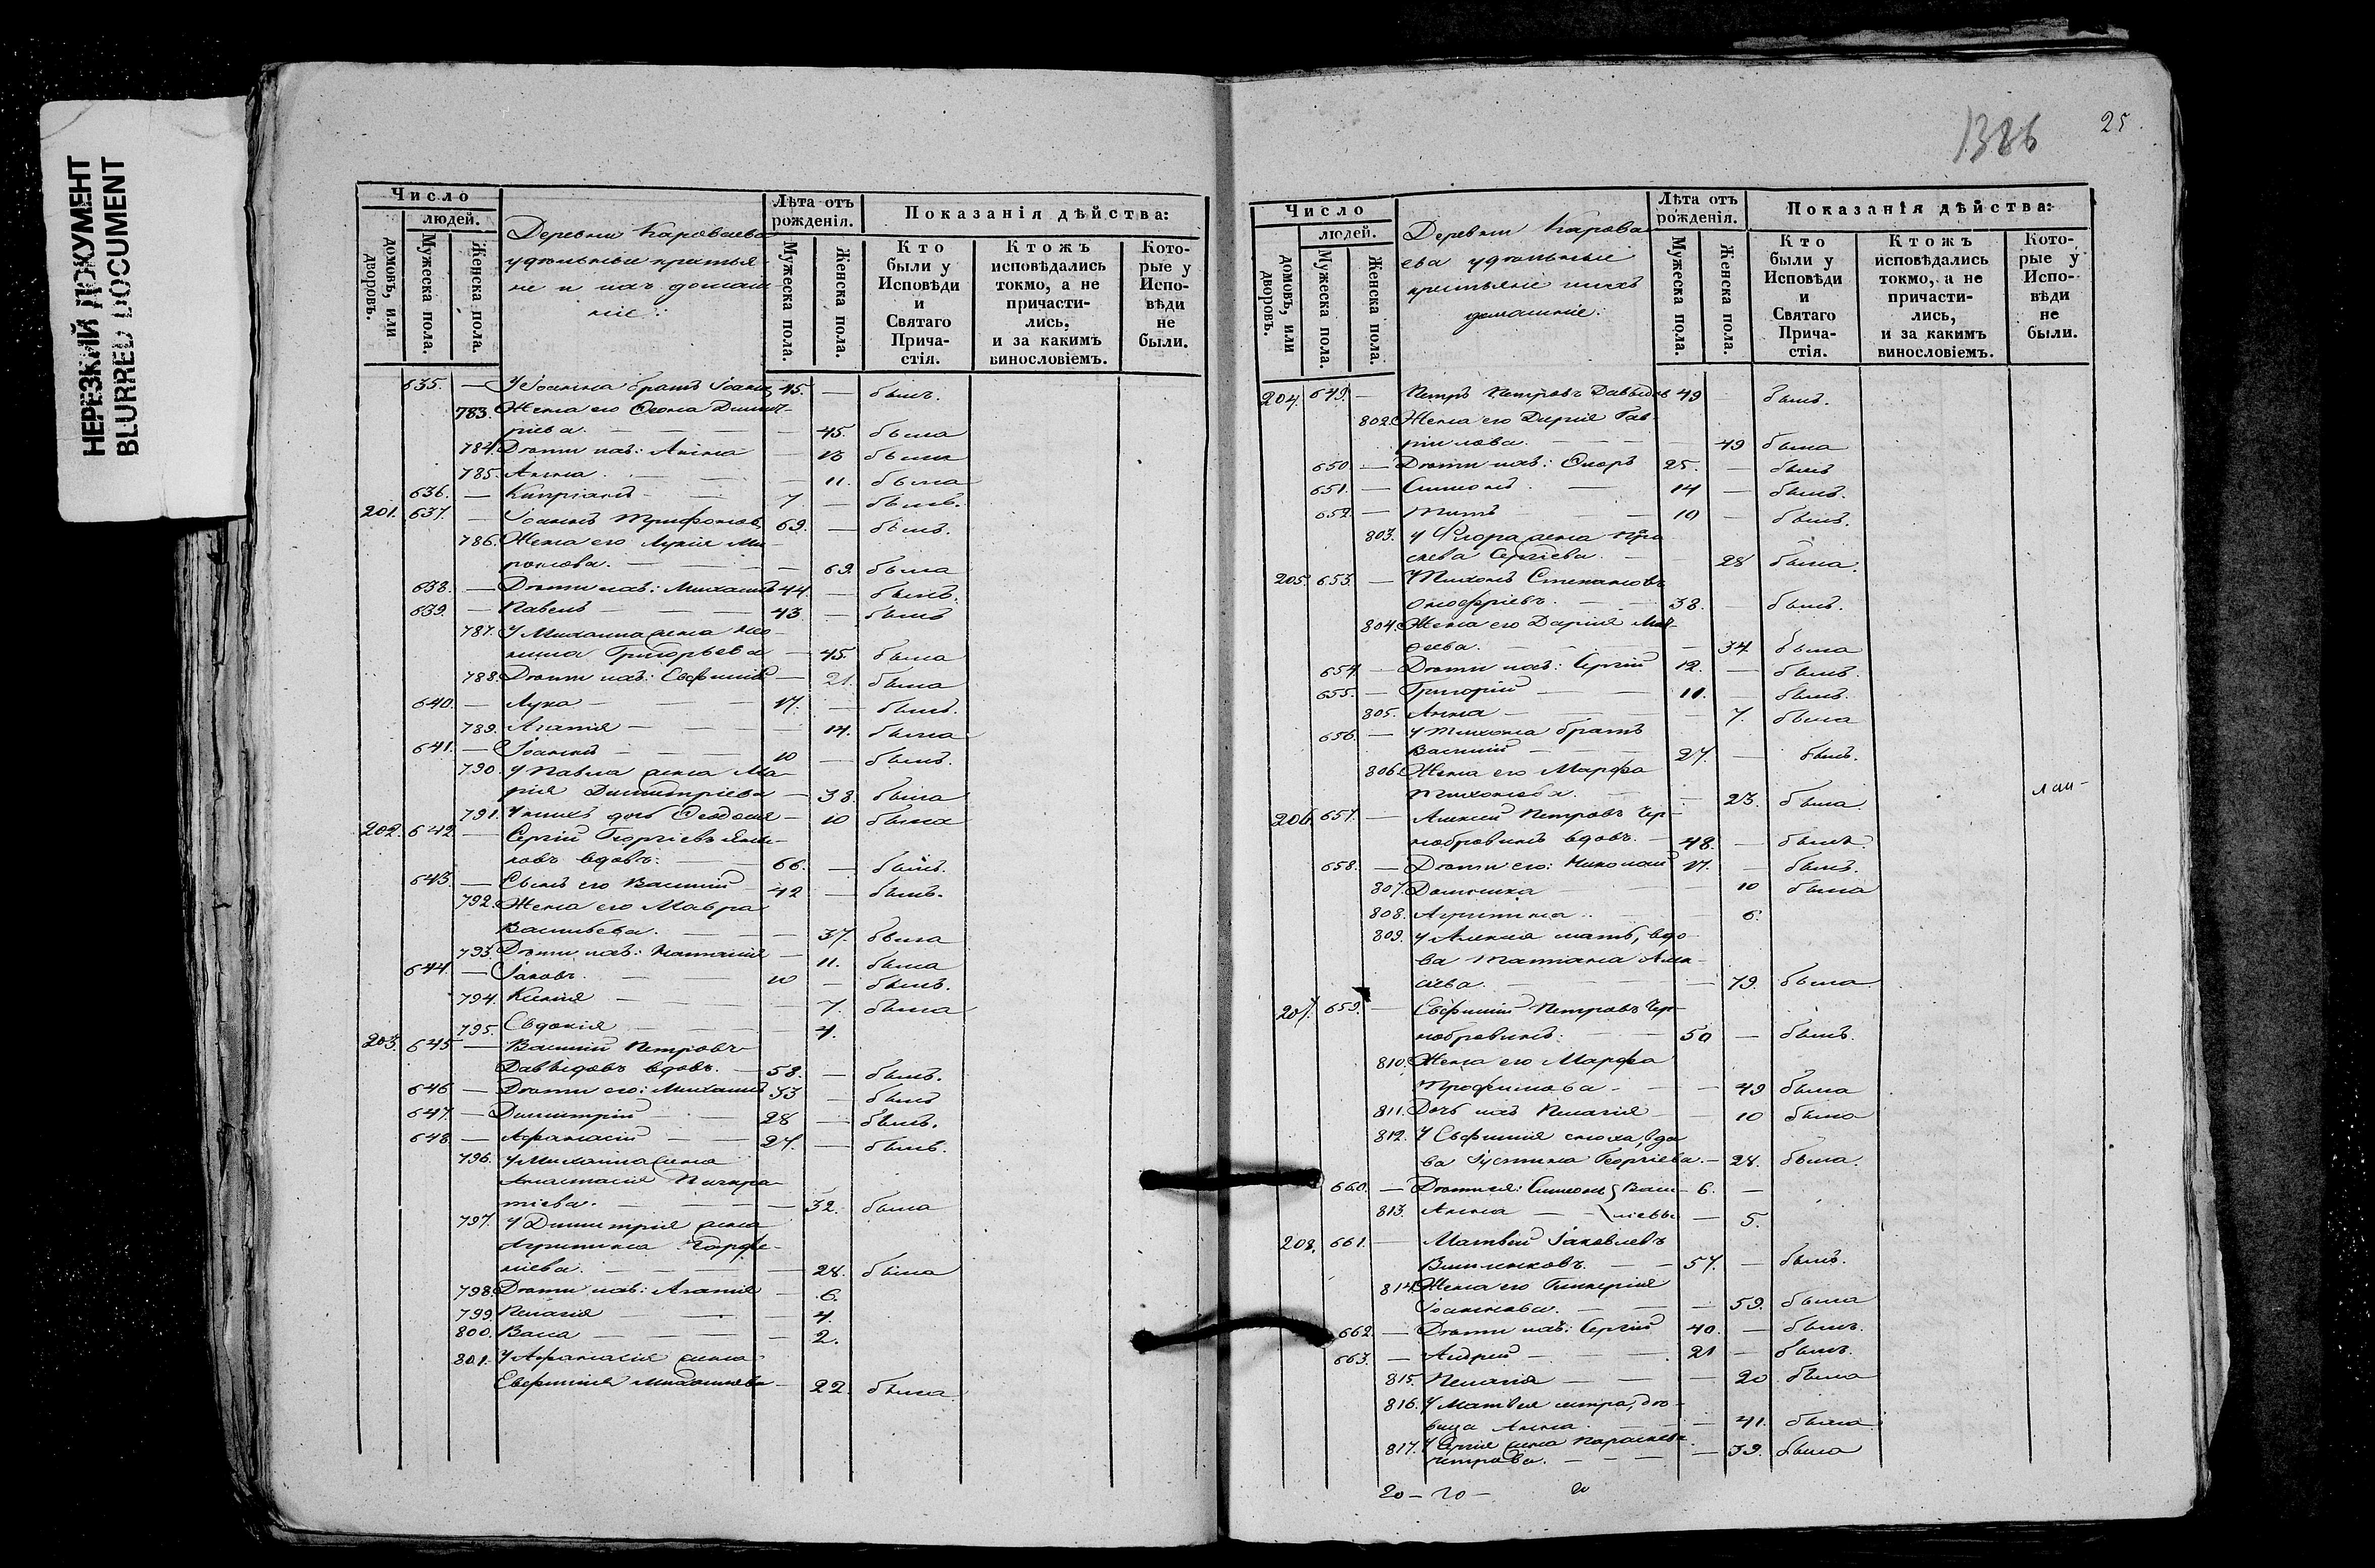 НЕРЕЗКИЙ ДОКУМЕНТ
BLURRED DOCUMENT
Число
людей.
домовъ, или дворовъ.
Мужеска пола.
Женска пола.
Деревни Короваева
удѣльные крестья-
не и ихъ домаш-
ніе:
Лѣта отъ рожденія.
Мужеска пола.
Женска пола.
Показанія дѣйства:
Кто были у Исповѣди и Святаго Прича-стія.
Ктожъ исповѣдались токмо, а не причасти-лись, и за какимъ винословіемъ.
Кото-рые у Испо-вѣди не были.
635. — У Іоанна братъ Іоаннъ 45. — былъ.
783. Жена его Ѳекла Димит-
ріева. — 45. была
784. Дѣти ихъ: Анна — была
785. Анна — 11. была
636. — Кипріанъ — 7 — былъ.
201. 637. — Іоаннъ Трифоновъ 69. — былъ.
786. Жена его Лукія Ми-
ронова. — 69. была
638. — Дѣти ихъ: Михаилъ 44. — былъ.
639. — Павелъ — 43 — былъ
787. У Михаила жена
Григорьева — 45. была
788. Дѣти ихъ: Евфимія — 21. была
640. — Лука — 17. — былъ.
789. Агапія — 14. была
641. — Іоаннъ — 10 — былъ.
790. У Павла жена Ма-
рія Димитріева — 38. была
791. У нихъ дочь Ѳеодосія — 10 была
202. 642. — Сергій Георгіевъ
вдовъ: — 66. — былъ.
643. — Сынъ его Василій — 42 — былъ.
792. Жена его Мавра
Васильева. — 37. была
793. Дѣти ихъ: Наталія — 11. была
644. — Іаковъ. — 10 — былъ.
794. Ксенія — 7. была
795. Евдокія — 4.
203. 645 — Василій Петровъ
Давыдовъ вдовъ. — 58. — былъ.
646 — Дѣти его: Михаилъ 33 — былъ
647. — Димитрій — 28 — былъ.
648. — Афанасій — 24. — былъ.
796. У Михаила жена
Анастасія Панкра-
тіева. — 32. была
797. У Димитрія жена
Агрипина Парфе-
ніева. — 28. была
798. Дѣти ихъ: Агапія — 6.
799. Пелагія — 4.
800. Васса — 2.
801. У Афанасія жена
Евфимія Михаилова — 22. была
1386
25.
Число
людей.
домовъ, или дворовъ.
Мужеска пола.
Женска пола.
Деревни Корова-
ева удѣльные
крестьяне и ихъ
домашніе:
Лѣта отъ рожденія.
Мужеска пола.
Женска пола.
Показанія дѣйства:
Кто были у Исповѣди и Святаго Прича-стія.
Ктожъ исповѣдались токмо, а не причасти-лись, и за какимъ винословіемъ.
Кото-рые у Испо-вѣди не были.
204. 649. — Петръ Петровъ Давыдовъ 49 — былъ.
802. Жена его Дарія Гав-
ріилова. — 49 была
650 — Дѣти ихъ: Флоръ 25. — былъ
651. — Симеонъ. — 14 — былъ.
652. — Титъ — 10 — былъ.
803. У Флора жена Пра-
скева Сергіева. — 28 была.
205. 653. — Тихонъ Степановъ
Онофріевъ. — 38. — былъ.
804. Жена его Дарія
— 34 была
654 — Дѣти ихъ: Сергій 12. — былъ.
655. — Григорій — 11. — былъ.
805. Анна — 7. была
656. — У Тихона братъ
Василій — 27. — былъ.
806. Жена его Марфа
Тихонова. — 23. была
206. 657. — Алексій Петровъ Чер-
нобровинъ вдовъ. — 48. — былъ.
658. — Дѣти его: Николай 17. — былъ.
807. Домника — 10 была
808. Агрипина — 6.
809. У Алексія мать, вдо-
ва Татіана
— 79. была
207. 659. — Евфимій Петровъ Чер-
нобровинъ. — 50 — былъ.
810. Жена его Марфа
Трофимова — 49 была
811. Дочь ихъ Пелагія — 10 была
812. У Евфимія сноха, вдо-
ва Іустина Георгіева. — 28. была.
660. — Дѣти ея: Симеонъ } Васи- 6. —
813. Анна — } ліевы — 5.
208. 661. — Матвѣй Іаковлевъ
— 57. — былъ.
814. Жена его Гликерія
Іоаннова. — 59. была
662. — Дѣти ихъ: Сергій 40. — былъ.
663. — Андрей — 21 — былъ.
815. Пелагія — 20 была
816. У Матвѣя сестра, дѣ-
вица Анна — 41. была
817. У Сергія жена Параскева
Петрова. — 39. была
20 — 20 — 20